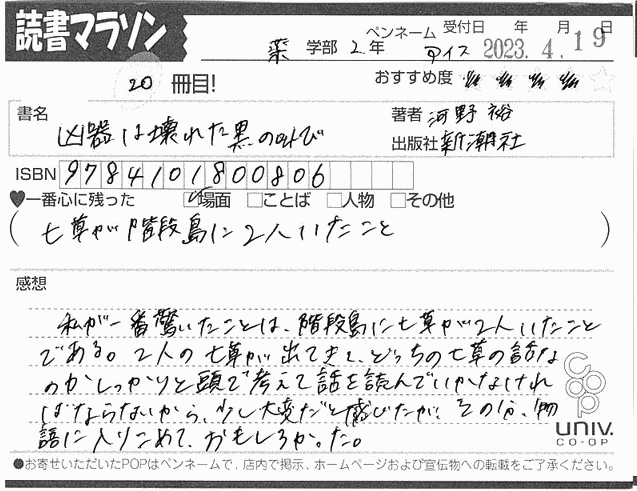 読書マラソン
ペンネーム 受付日 年 月 日
薬 学部 2年 アイス 2023.4.19
20 冊目! おすすめ度
書名 著者 河野 裕
凶器は壊れた黒の叫び 出版社 新潮社
ISBN 9784101800806
♥一番心に残った ☑場面 □ことば □人物 □その他
(七草が階段島に2人いたこと)
感想
私が一番驚いたことは、階段島に七草が2人いたこと
である。2人の七草が出てきて、どっちの七草の話な
のかしっかりと頭で考えて話を読んでいかなけれ
ばならないから、少し大変だと感じたが、その分、物
語に入りこめて、おもしろかった。
coop
UNIV.
CO-OP
●お寄せいただいたPOPはペンネームで、店内で掲示、ホームページおよび宣伝物への転載をご了承ください。